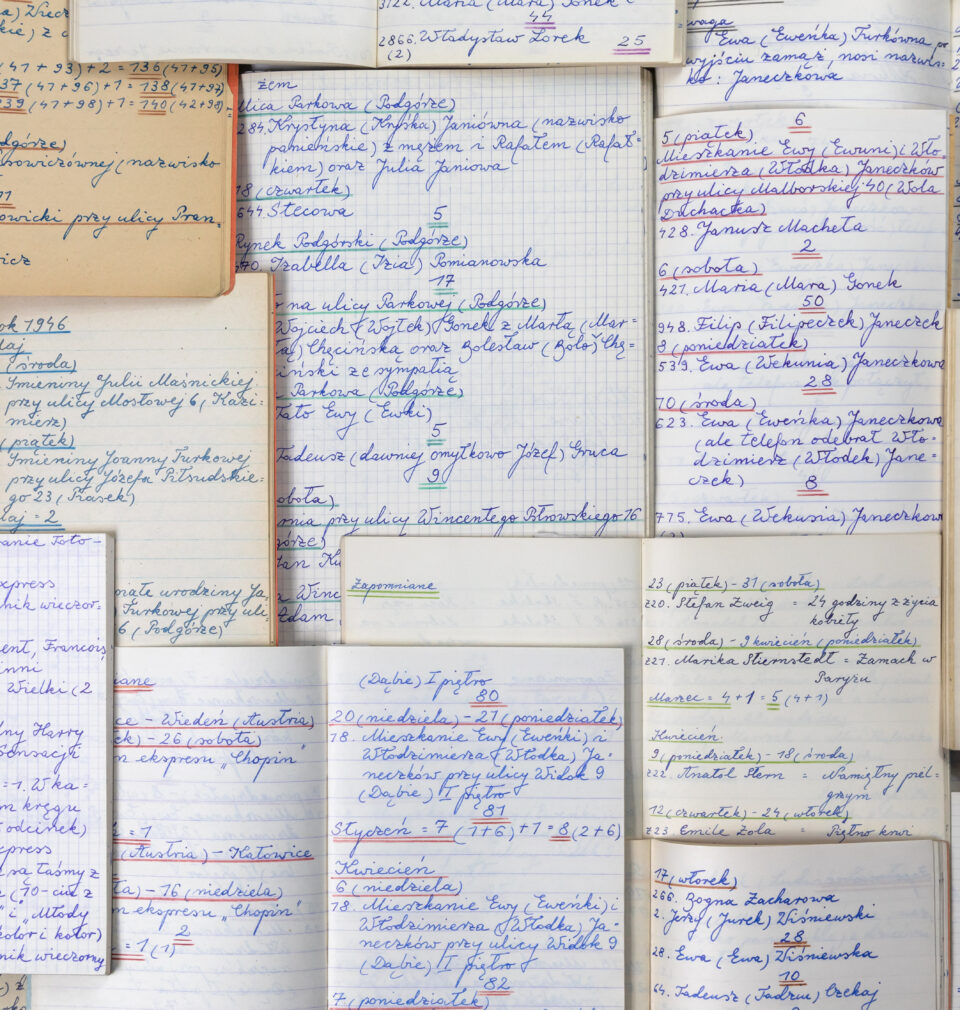 3122. Maria (Mara) Gonek
44
2866. Władysław Lorek 25
(2)
waga
Ewa (Eweńka) Turkówna po
wyjściu zamąż, nosi nazwis-
ko : Janeczkowa
(47 + 93) + 2 = 136 (47+95)
37 (47+96) + 1 = 138 (47+97)
239 (47+98) + 1 = 140 (42+98)
dgórze)
rowiczównej (nazwisko
owicki przy ulicy Pran-
wicz
żem
Ulica Parkowa (Podgórze)
284. Krystyna (Kryśka) Janiówna (nazwisko
panieńskie) z mężem i Rafałem (Rafał-
kiem) oraz Julia Janiowa
18 (czwartek)
644 Stecowa
5
Rynek Podgórski (Podgórze)
670. Izabella (Izia) Pomianowska
17
na ulicy Parkowej (Podgórze)
Wojciech (Wojtek) Gonek z Martą (Mar-
tą) Chęcińską oraz Bolesław (Bolo) Chę-
iński ze sympatią
Parkowa (Podgórze)
Tato Ewy (Ewki)
5
Tadeusz (dawniej omyłkowo Józef) Gruca
9
obota)
rnia przy ulicy Wincentego Pstrowskiego 16
górze)
Winc
Adam
6
5 (piątek)
Mieszkanie Ewy (Ewuni) i Wło-
dzimierza (Włodka) Janeczków
przy ulicy Malborskiej 40 (Wola
Duchacka)
428. Janusz Macheta
2
6 (sobota)
421. Maria (Mara) Gonek
50
948. Filip (Filipeczek) Janeczek
8 (poniedziałek)
539. Ewa (Wekunia) Janeczkowa
28
10 (środa)
623. Ewa (Eweńka) Janeczkowa
(ale telefon odebrał Wło-
dzimierz (Włodek) Jane-
czek)
8
775. Ewa (Wekusia) Janeczkowa
ok 1946
aj
(środa)
Imieniny Julii Maśnickiej
przy ulicy Mostowej 6 (Kazi-
mierz)
(piątek)
Imieniny Joanny Turkowej
przy ulicy Józefa Piłsudskie-
go 23 (Piasek)
aj = 2
urodziny Ja
Turkowej przy uli-
6 (Podgórze)
anie Toto-
xpress
nik wieczor-
ent, Francois
inni
Wielki (2
ny Harry
Sensacji
= 1. W ka-
m kręgu
odcinek)
xpress
są taśmy z
z (10-cio z
" i "Młody
kolor i kolor)
nik wieczorny
Zapomniane
23 (piątek) - 31 (sobota)
220. Stefan Zweig = 24 godziny z życia
kobiety
28 (środa) - 9 kwiecień (poniedziałek)
221. Marika Stiernstedt = Zamach w
Paryżu
Marzec = 4 + 1 = 5 (4+1)
Kwiecień
9 (poniedziałek) - 18 (środa)
222. Anatol Stern = Namiętny piel-
grzym
12 (czwartek) - 24 (wtorek)
223. Emile Zola = Piętno krwi
iane
ce - Wiedeń (Austria)
ek) - 26 (sobota)
m ekspresu „Chopin"
= 1
(Austria) - Katowice
ta) - 16 (niedziela)
m ekspresu „Chopin"
2
= 1 (1)
(Dąbie) I piętro
80
20 (niedziela) - 21 (poniedziałek)
18. Mieszkanie Ewy (Eweńki) i
Włodzimierza (Włodka) Ja-
neczków przy ulicy Widok 9
(Dąbie) I piętro
81
Styczeń = 7 (1+6) + 1 = 8 (2+6)
Kwiecień
6 (niedziela)
18. Mieszkanie Ewy (Eweńki) i
Włodzimierza (Włodka) Ja-
neczków przy ulicy Widok 9
(Dąbie) I piętro
82
7 (poniedziałek)
17 (wtorek)
266. Bogna Zacharowa
2. Jerzy (Jurek) Wiśniewski
28
28. Ewa (Ewa) Wiśniewska
10
64. Tadeusz (Tadziu) Czekaj